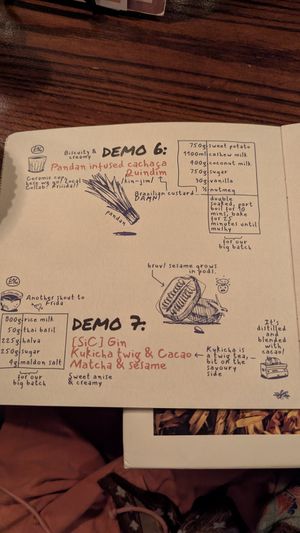 Biscuity &
creamy
DEMO 6:
Pandan infused cachaça
Quindim
/kin-jim/
Brazilian custard.
DAMN!
Ceramic cup,
pandan
750g sweet potato
1100ml cashew milk
400g coconut milk
750g sugar
30g vanilla
½ nutmeg
double
soaked, port
boil for 10
mins, bake
for 25
minutes until
mushy
for our
big batch
bruv! sesame grows
in pods.
Another shout to
Frida
800g rice milk
50g thai basil
225g halva
250g sugar
4g maldon salt
for our
big batch
DEMO 7:
[SiC] Gin
Kukicha twig & Cacao
Matcha & sesame
Sweet anise
& creamy
Kukicha is
a twig tea,
bit on the
savoury
side
It's
distilled
and
blended
with
cacao!